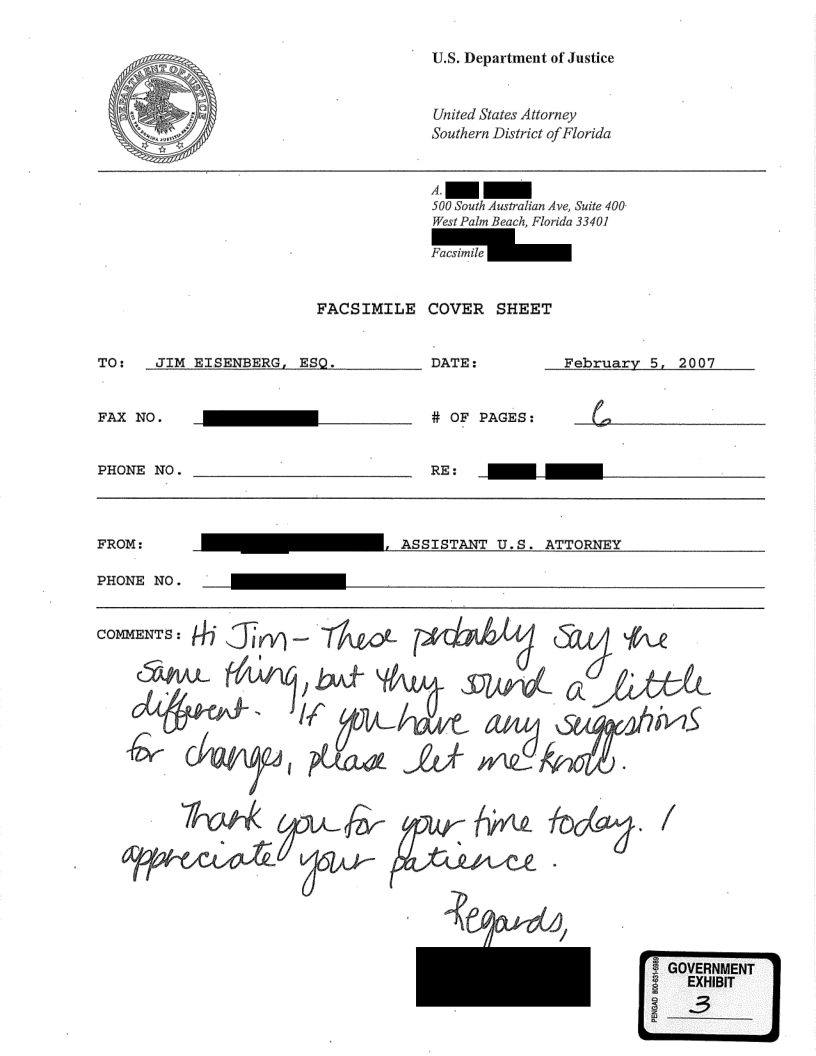 DEPARTMENT OF JUSTICE
QUI PRO DOMINA JUSTITIA SEQUITUR
U.S. Department of Justice
United States Attorney
Southern District of Florida
A.
500 South Australian Ave, Suite 400
West Palm Beach, Florida 33401
Facsimile
FACSIMILE COVER SHEET
TO: JIM EISENBERG, ESQ. DATE: February 5, 2007
FAX NO. # OF PAGES: 6
PHONE NO. RE:
FROM: , ASSISTANT U.S. ATTORNEY
PHONE NO.
COMMENTS: Hi Jim - These probably say the
same thing, but they sound a little
different. If you have any suggestions
for changes, please let me know.
Thank you for your time today. I
appreciate your patience.
Regards,
PENGAD 800-631-6989
GOVERNMENT
EXHIBIT
3